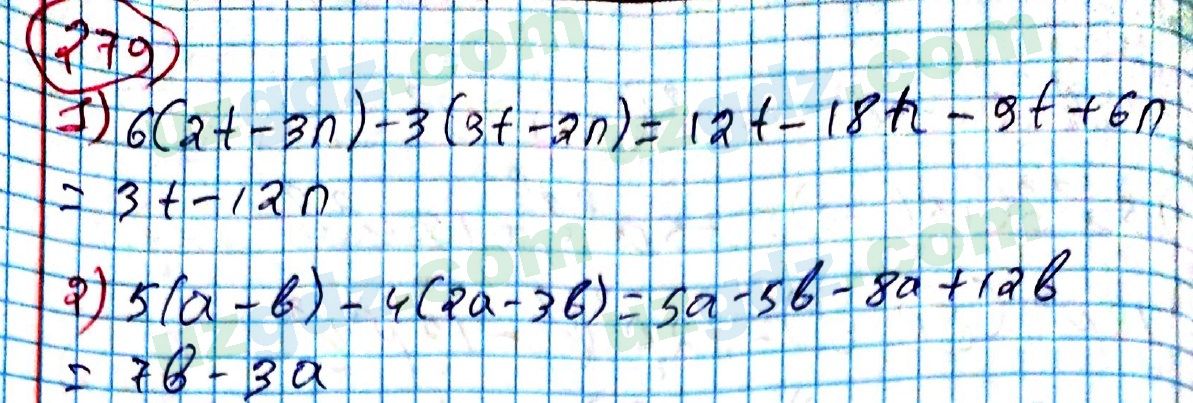 279
1) 6(2t-3n)-3(3t-2n)=12t-18n-9t+6n
= 3t-12n
2) 5(a-b)-4(2a-3b)=5a-5b-8a+12b
= 7b-3a
uzgdz.com uzgdz.com
uzgdz.com uzgdz.com